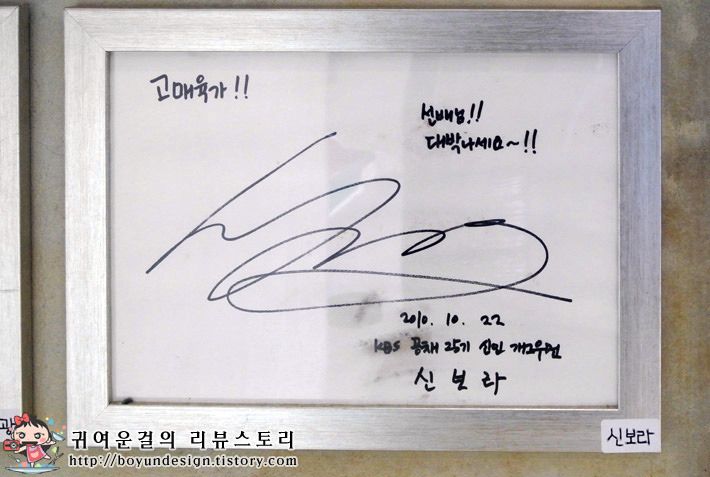 고매육가!!
선배님!!
대박나세요~!!
2010. 10. 22
KBS 공채 25기 신인 개그우먼
신보라
광
신보라
귀여운걸의 리뷰스토리
http://boyundesign.tistory.com